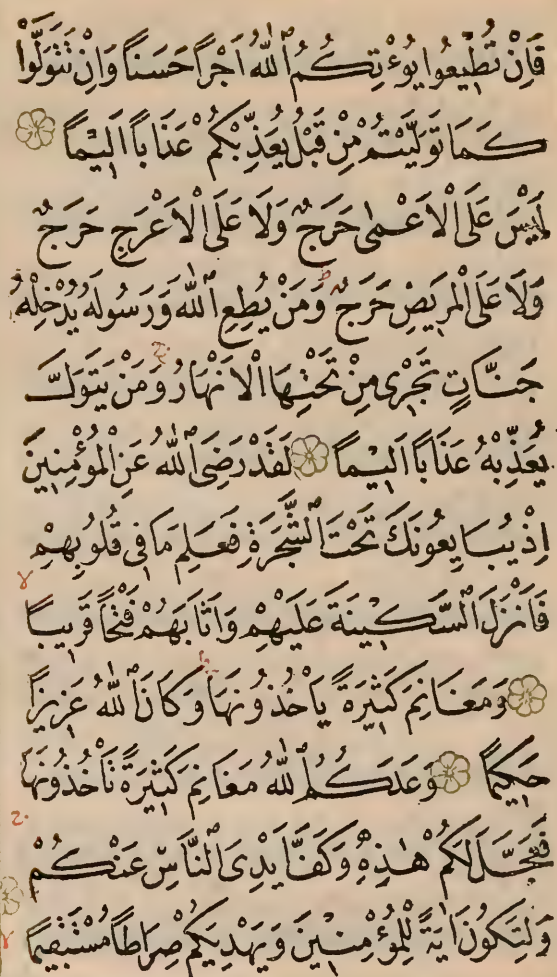 فَاِنْ تُطٖيعُوا يُوءْتِكُمُ ٱللّٰهُ اَجْرًا حَسَنًا وَاِنْ تَتَوَلَّوْا
كَمَا تَوَلَّيْتُمْ مِنْ قَبْلُ يُعَذِّبْكُمْ عَذَابًا اَلٖيمًا
لَيْسَ عَلَى ٱلْاَعْمٰى حَرَجٌ وَلَا عَلَى ٱلْاَعْرَجِ حَرَجٌ
وَلَا عَلَى ٱلْمَرٖيضِ حَرَجٌ ط وَمَنْ يُطِعِ ٱللّٰهَ وَرَسُولَهُ يُدْخِلْهُ
جَنَّاتٍ تَجْرٖى مِنْ تَحْتِهَا ٱلْاَنْهَارُ ج وَمَنْ يَتَوَلَّ
يُعَذِّبْهُ عَذَابًا اَلٖيمًا لَقَدْ رَضِىَ ٱللّٰهُ عَنِ ٱلْمُؤْمِنٖينَ
اِذْ يُبَايِعُونَكَ تَحْتَ ٱلشَّجَرَةِ فَعَلِمَ مَا فٖى قُلُوبِهِمْ
فَاَنْزَلَ ٱلسَّكٖينَةَ عَلَيْهِمْ وَاَثَابَهُمْ فَتْحًا قَرٖيبًا لا
وَمَغَانِمَ كَثٖيرَةً يَاْخُذُونَهَا وَكَانَ ٱللّٰهُ عَزٖيزًا
حَكٖيمًا وَعَدَكُمُ ٱللّٰهُ مَغَانِمَ كَثٖيرَةً تَاْخُذُونَهَا
فَعَجَّلَ لَكُمْ هٰذِهٖ وَكَفَّ اَيْدِىَ ٱلنَّاسِ عَنْكُمْ ج
وَلِتَكُونَ اٰيَةً لِلْمُؤْمِنٖينَ وَيَهْدِيَكُمْ صِرَاطًا مُسْتَقٖيمًا لا